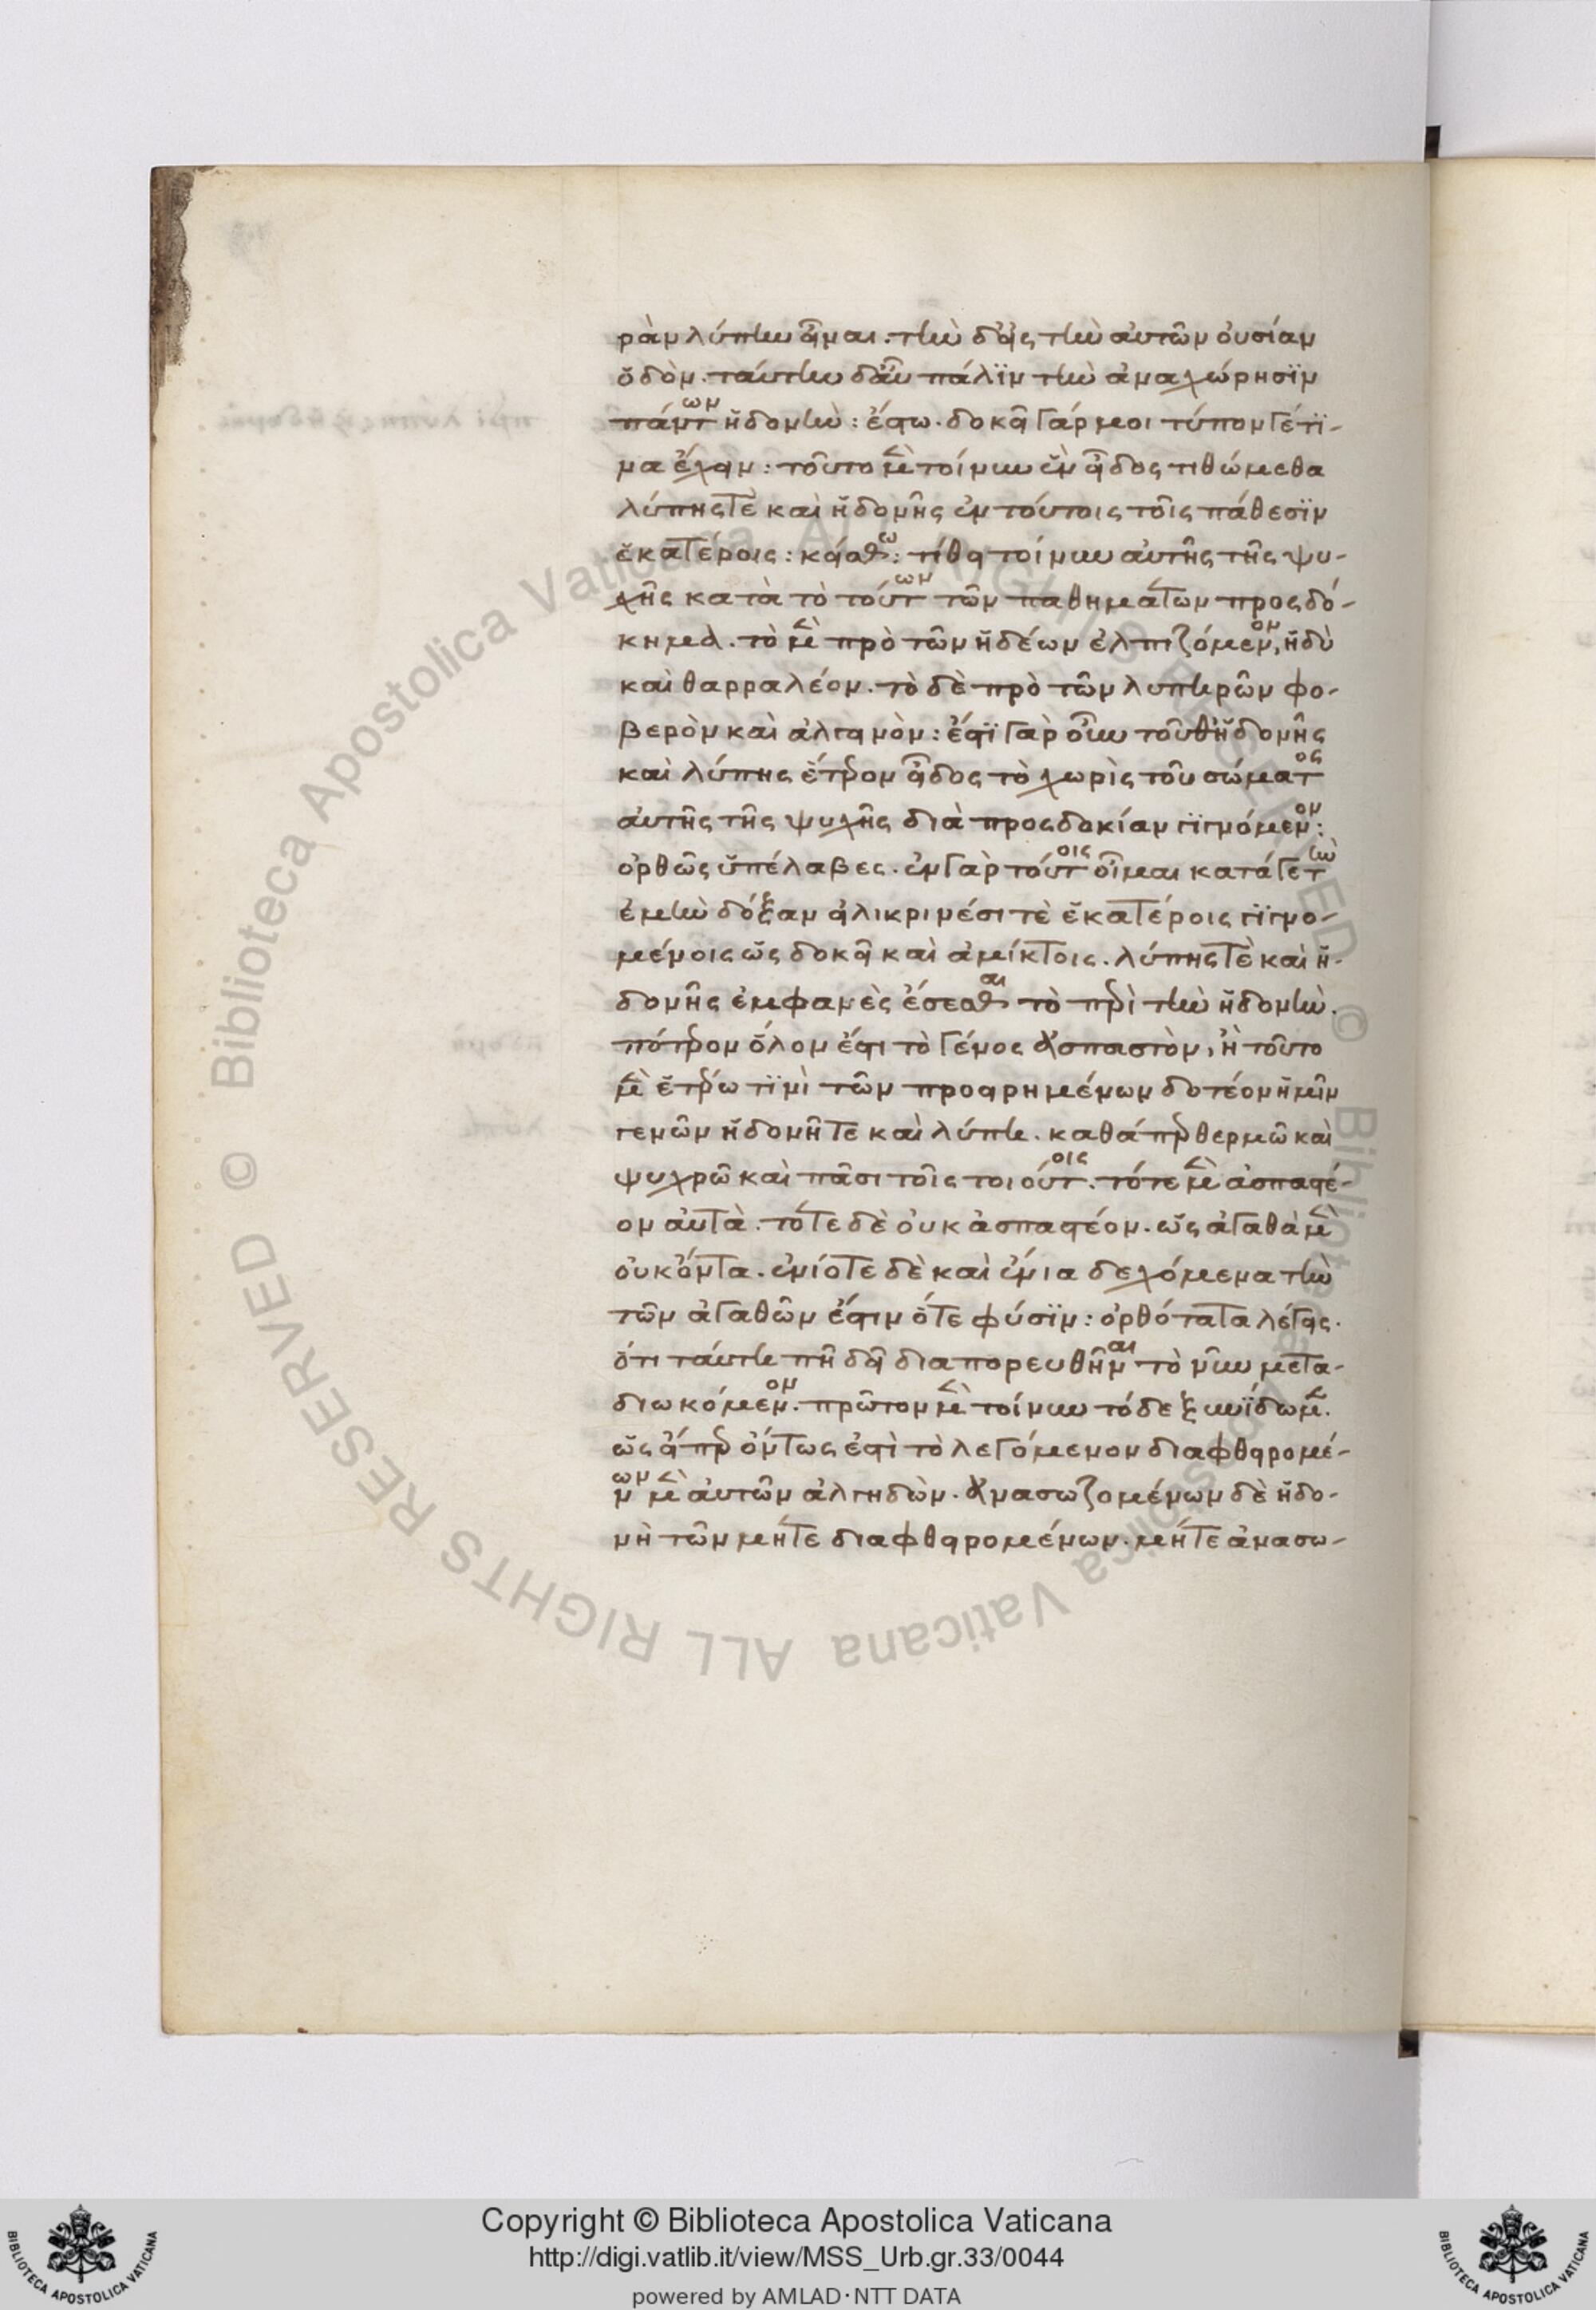 ρὰν λύπην εἶναι. τὴν δ' εἰς τὴν αὐτῶν οὐσίαν
ὁδὸν. ταύτην δὲ αὖ πάλϊν τὴν ἀναχώρησϊν
πάντων ἡδονὴν: ἔστω. δοκεῖ γάρ μοι τύπον γέ τϊ-
να ἔχειν: τοῦτο μὲν τοίνυν ἓν εἶδος τιθώμεθα
λύπης τὲ καὶ ἡδονῆς ἐν τούτοις τοῖς πάθεσϊν
ἑκατέροις: κείσθω: τίθει τοίνυν αὐτῆς τῆς ψυ-
χῆς κατὰ τὸ τούτων τῶν παθημάτων προσδό-
κημα. τὸ μὲν πρὸ τῶν ἡδέων ἐλπιζόμενον, ἡδὺ
καὶ θαρραλέον. τὸ δὲ πρὸ τῶν λυπηρῶν φο-
βερὸν καὶ ἀλγεινὸν: ἔστϊ γὰρ οὖν τοῦθ' ἡδονῆς
καὶ λύπης ἕτερον εἶδος τὸ χωρὶς τοῦ σώματος
αὐτῆς τῆς ψυχῆς διὰ προσδοκίαν γϊγνόμενον:
ὀρθῶς ὑπέλαβες. ἐν γὰρ τούτοις οἶμαι κατά γε τὴν
ἐμὴν δόξαν εἰλικρινέσι τὲ ἑκατέροις γϊγνο-
μένοις ὡς δοκεῖ καὶ ἀμίκτοις. λύπης τὲ καὶ ἡ-
δονῆς ἐμφανὲς ἔσεσθαι τὸ περὶ τὴν ἡδονὴν.
πότερον ὅλον ἔστι τὸ γένος ἀσπαστὸν, ἢ τοῦτο
μὲν ἑτέρω τϊνὶ τῶν προειρημένων δοτέον ἡμῖν
γενῶν ἡδονῆ τε καὶ λύπη. καθάπερ θερμῶ καὶ
ψυχρῶ καὶ πᾶσι τοῖς τοιούτοις. τότε μὲν ἀσπαστέ-
ον αὐτὰ. τότε δὲ οὐκ ἀσπαστέον. ὡς ἀγαθὰ μὲν
οὐκ ὄντα. ἐνίοτε δὲ καὶ ἔνια δεχόμενα τὴν
τῶν ἀγαθῶν ἔστιν ὅτε φύσϊν: ὀρθότατα λέγεις.
ὅτι ταύτη πῆ δεῖ διαπορευθῆναι τὸ νῦν μετα-
διωκόμενον. πρῶτον μὲν τοίνυν τόδε ξυνϊδωμεν.
ὡς εἴπερ ὄντως ἐστὶ τὸ λεγόμενον διαφθειρομέ-
νων μὲν αὐτῶν ἀλγηδὼν. ἀνασωζομένων δὲ ἡδο-
νὴ τῶν μήτε διαφθειρομένων. μήτε ἀνασω-
Copyright © Biblioteca Apostolica Vaticana
http://digi.vatlib.it/view/MSS_Urb.gr.33/0044
powered by AMLAD·NTT DATA